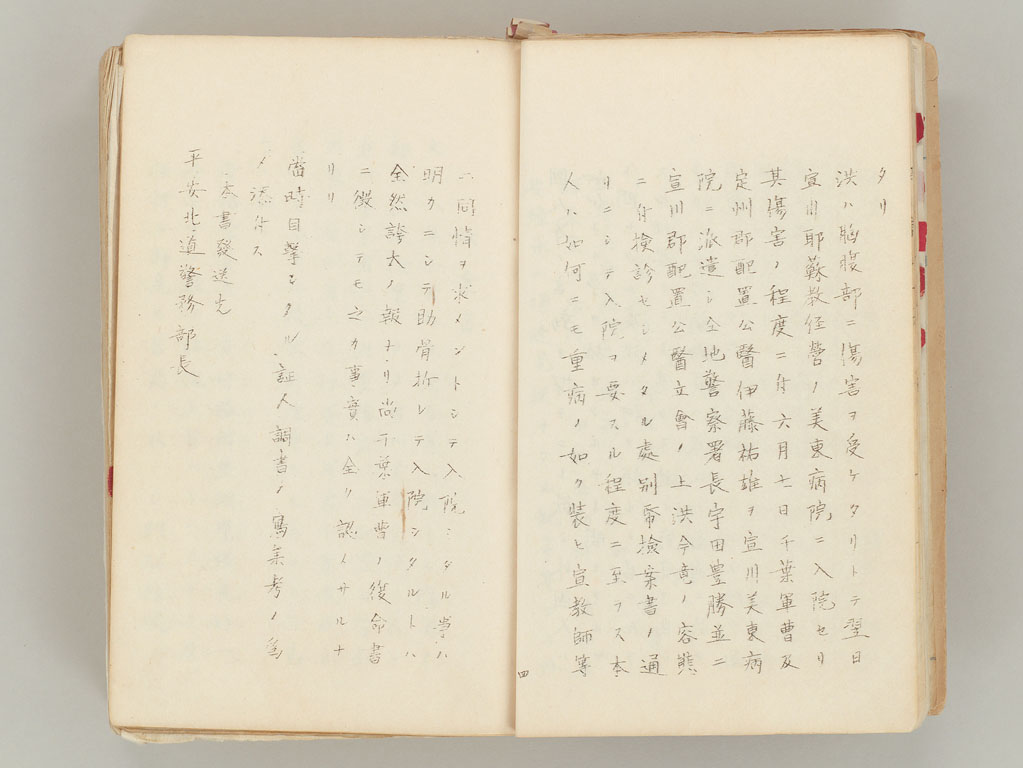 タリ
洪ハ胸腹部ニ傷害ヲ受ケタリトテ翌日
宣川耶蘇教経営ノ美東病院ニ入院セリ
其傷害ノ程度ニ付六月七日千葉軍曹及
定州郡配置公醫伊藤祐雄ヲ宣川美東病
院ニ派遣シ仝地警察署長宇田豊勝並ニ
宣川郡配置公醫立會ノ上洪今竜ノ容態
ニ付検診セシメタル處別帋検案書ノ通
リニシテ入院ヲ要スル程度ニ至ラス本
人ハ如何ニモ重病ノ如ク装ヒ宣教師等
四
ニ同情ヲ求メントシテ入院シタル学ハ
明カニシテ助骨折レテ入院シタルトハ
全然誇大ノ報ナリ尚千葉軍曹ノ復命書
ニ徴シテモ之カ事實ハ全ク認メサルナ
リリ
當時目撃シタル証人調書ノ寫茉考ノ為
メ添付ス
本書發送先
平安北道警務部長